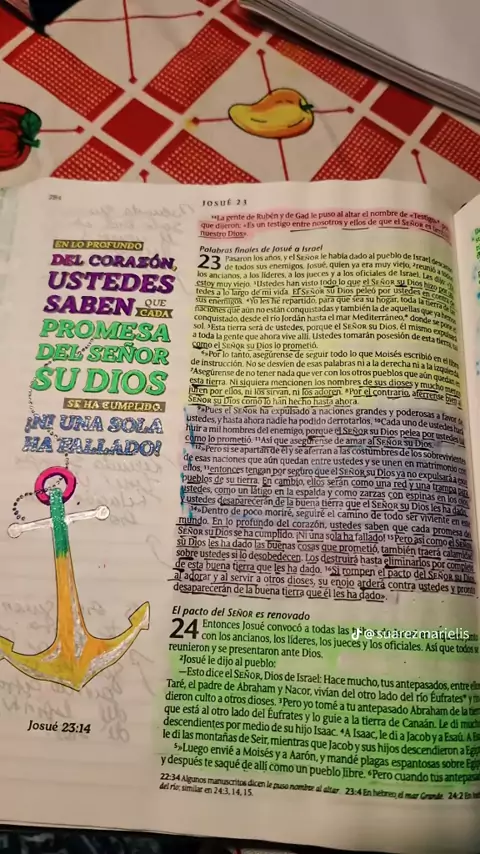 JOSUÉ 23
EN LO PROFUNDO
DEL CORAZÓN,
USTEDES
SABEN QUE CADA
PROMESA
DEL SEÑOR
SU DIOS
SE HA CUMPLIDO.
¡NI UNA SOLA
HA FALLADO!
Josué 23:14
34La gente de Rubén y de Gad le puso al altar el nombre de «Testigo»,
que dijeron: «Es un testigo entre nosotros y ellos de que el SEÑOR es
nuestro Dios».
Palabras finales de Josué a Israel
23 Pasaron los años, y el SEÑOR le había dado al pueblo de Israel descanso
de todos sus enemigos. Josué, quien ya era muy viejo, 2reunió a
los ancianos, a los líderes, a los jueces y a los oficiales de Israel. Les dijo:
estoy muy viejo. 3Ustedes han visto todo lo que el SEÑOR su Dios hizo por
tedes a lo largo de mi vida. El SEÑOR su Dios peleó por ustedes en contra
sus enemigos. 4Yo les he repartido, para que sea su hogar, toda la tierra
naciones que aún no están conquistadas y también la de aquellas que ya
conquistado, desde el río Jordán hasta el mar Mediterráneo, donde se pone
sol. 5Esta tierra será de ustedes, porque el SEÑOR su Dios, él mismo expulsará
a toda la gente que ahora vive allí. Ustedes tomarán posesión de esta tierra
como el SEÑOR su Dios lo prometió.
6»Por lo tanto, asegúrense de seguir todo lo que Moisés escribió en el libro
de instrucción. No se desvíen de esas palabras ni a la derecha ni a la izquierda.
7Asegúrense de no tener nada que ver con los otros pueblos que aún quedan
esta tierra. Ni siquiera mencionen los nombres de sus dioses y mucho menos
juren por ellos, ni los sirvan, ni los adoren. 8Por el contrario, aférrense bien a
SEÑOR su Dios como lo han hecho hasta ahora.
9»Pues el SEÑOR ha expulsado a naciones grandes y poderosas a favor de
ustedes, y hasta ahora nadie ha podido derrotarlos. 10Cada uno de ustedes
huir a mil hombres del enemigo, porque el SEÑOR su Dios pelea por ustedes
como lo prometió. 11Así que asegúrense de amar al SEÑOR su Dios.
12»Pero si se apartan de él y se aferran a las costumbres de los sobrevivientes
de esas naciones que aún quedan entre ustedes y se unen en matrimonio con
ellos, 13entonces tengan por seguro que el SEÑOR su Dios ya no expulsará a esos
pueblos de su tierra. En cambio, ellos serán como una red y una trampa para
ustedes, como un látigo en la espalda y como zarzas con espinas en los ojos,
y ustedes desaparecerán de la buena tierra que el SEÑOR su Dios les ha dado.
14»Dentro de poco moriré, seguiré el camino de todo ser viviente en este
mundo. En lo profundo del corazón, ustedes saben que cada promesa del
SEÑOR su Dios se ha cumplido. ¡Ni una sola ha fallado! 15Pero así como el SEÑOR
su Dios les ha dado las buenas cosas que prometió, también traerá calamidad
sobre ustedes si lo desobedecen. Los destruirá hasta eliminarlos por completo
de esta buena tierra que les ha dado. 16Si rompen el pacto del SEÑOR su Dios
al adorar y al servir a otros dioses, su enojo arderá contra ustedes y pronto
desaparecerán de la buena tierra que él les ha dado».
El pacto del SEÑOR es renovado
24 Entonces Josué convocó a todas las
con los ancianos, los líderes, los jueces y los oficiales. Así que todos se
reunieron y se presentaron ante Dios.
2Josué le dijo al pueblo:
—Esto dice el SEÑOR, Dios de Israel: Hace mucho, tus antepasados, entre ellos
Taré, el padre de Abraham y Nacor, vivían del otro lado del río Éufrates y
dieron culto a otros dioses. 3Pero yo tomé a tu antepasado Abraham de la tierra
que está al otro lado del Éufrates y lo guie a la tierra de Canaán. Le di muchos
descendientes por medio de su hijo Isaac. 4A Isaac, le di a Jacob y a Esaú. A Esaú
le di las montañas de Seir, mientras que Jacob y sus hijos descendieron a Egipto.
5»Luego envié a Moisés y a Aarón, y mandé plagas espantosas sobre Egipto
y después te saqué de allí como un pueblo libre. 6Pero cuando tus antepasados
22:34 Algunos manuscritos dicen le puso nombre al altar. 23:4 En hebreo, el mar Grande. 24:2 En
del río; similar en 24:3, 14, 15.
@suarezmarjelis